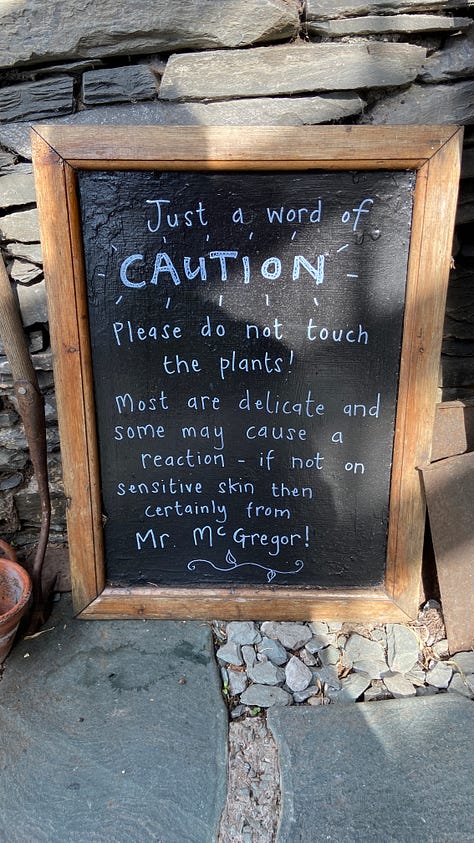 Just a word of
CAUTION
Please do not touch
the plants!
Most are delicate and
some may cause a
reaction - if not on
sensitive skin then
certainly from
Mr. McGregor!